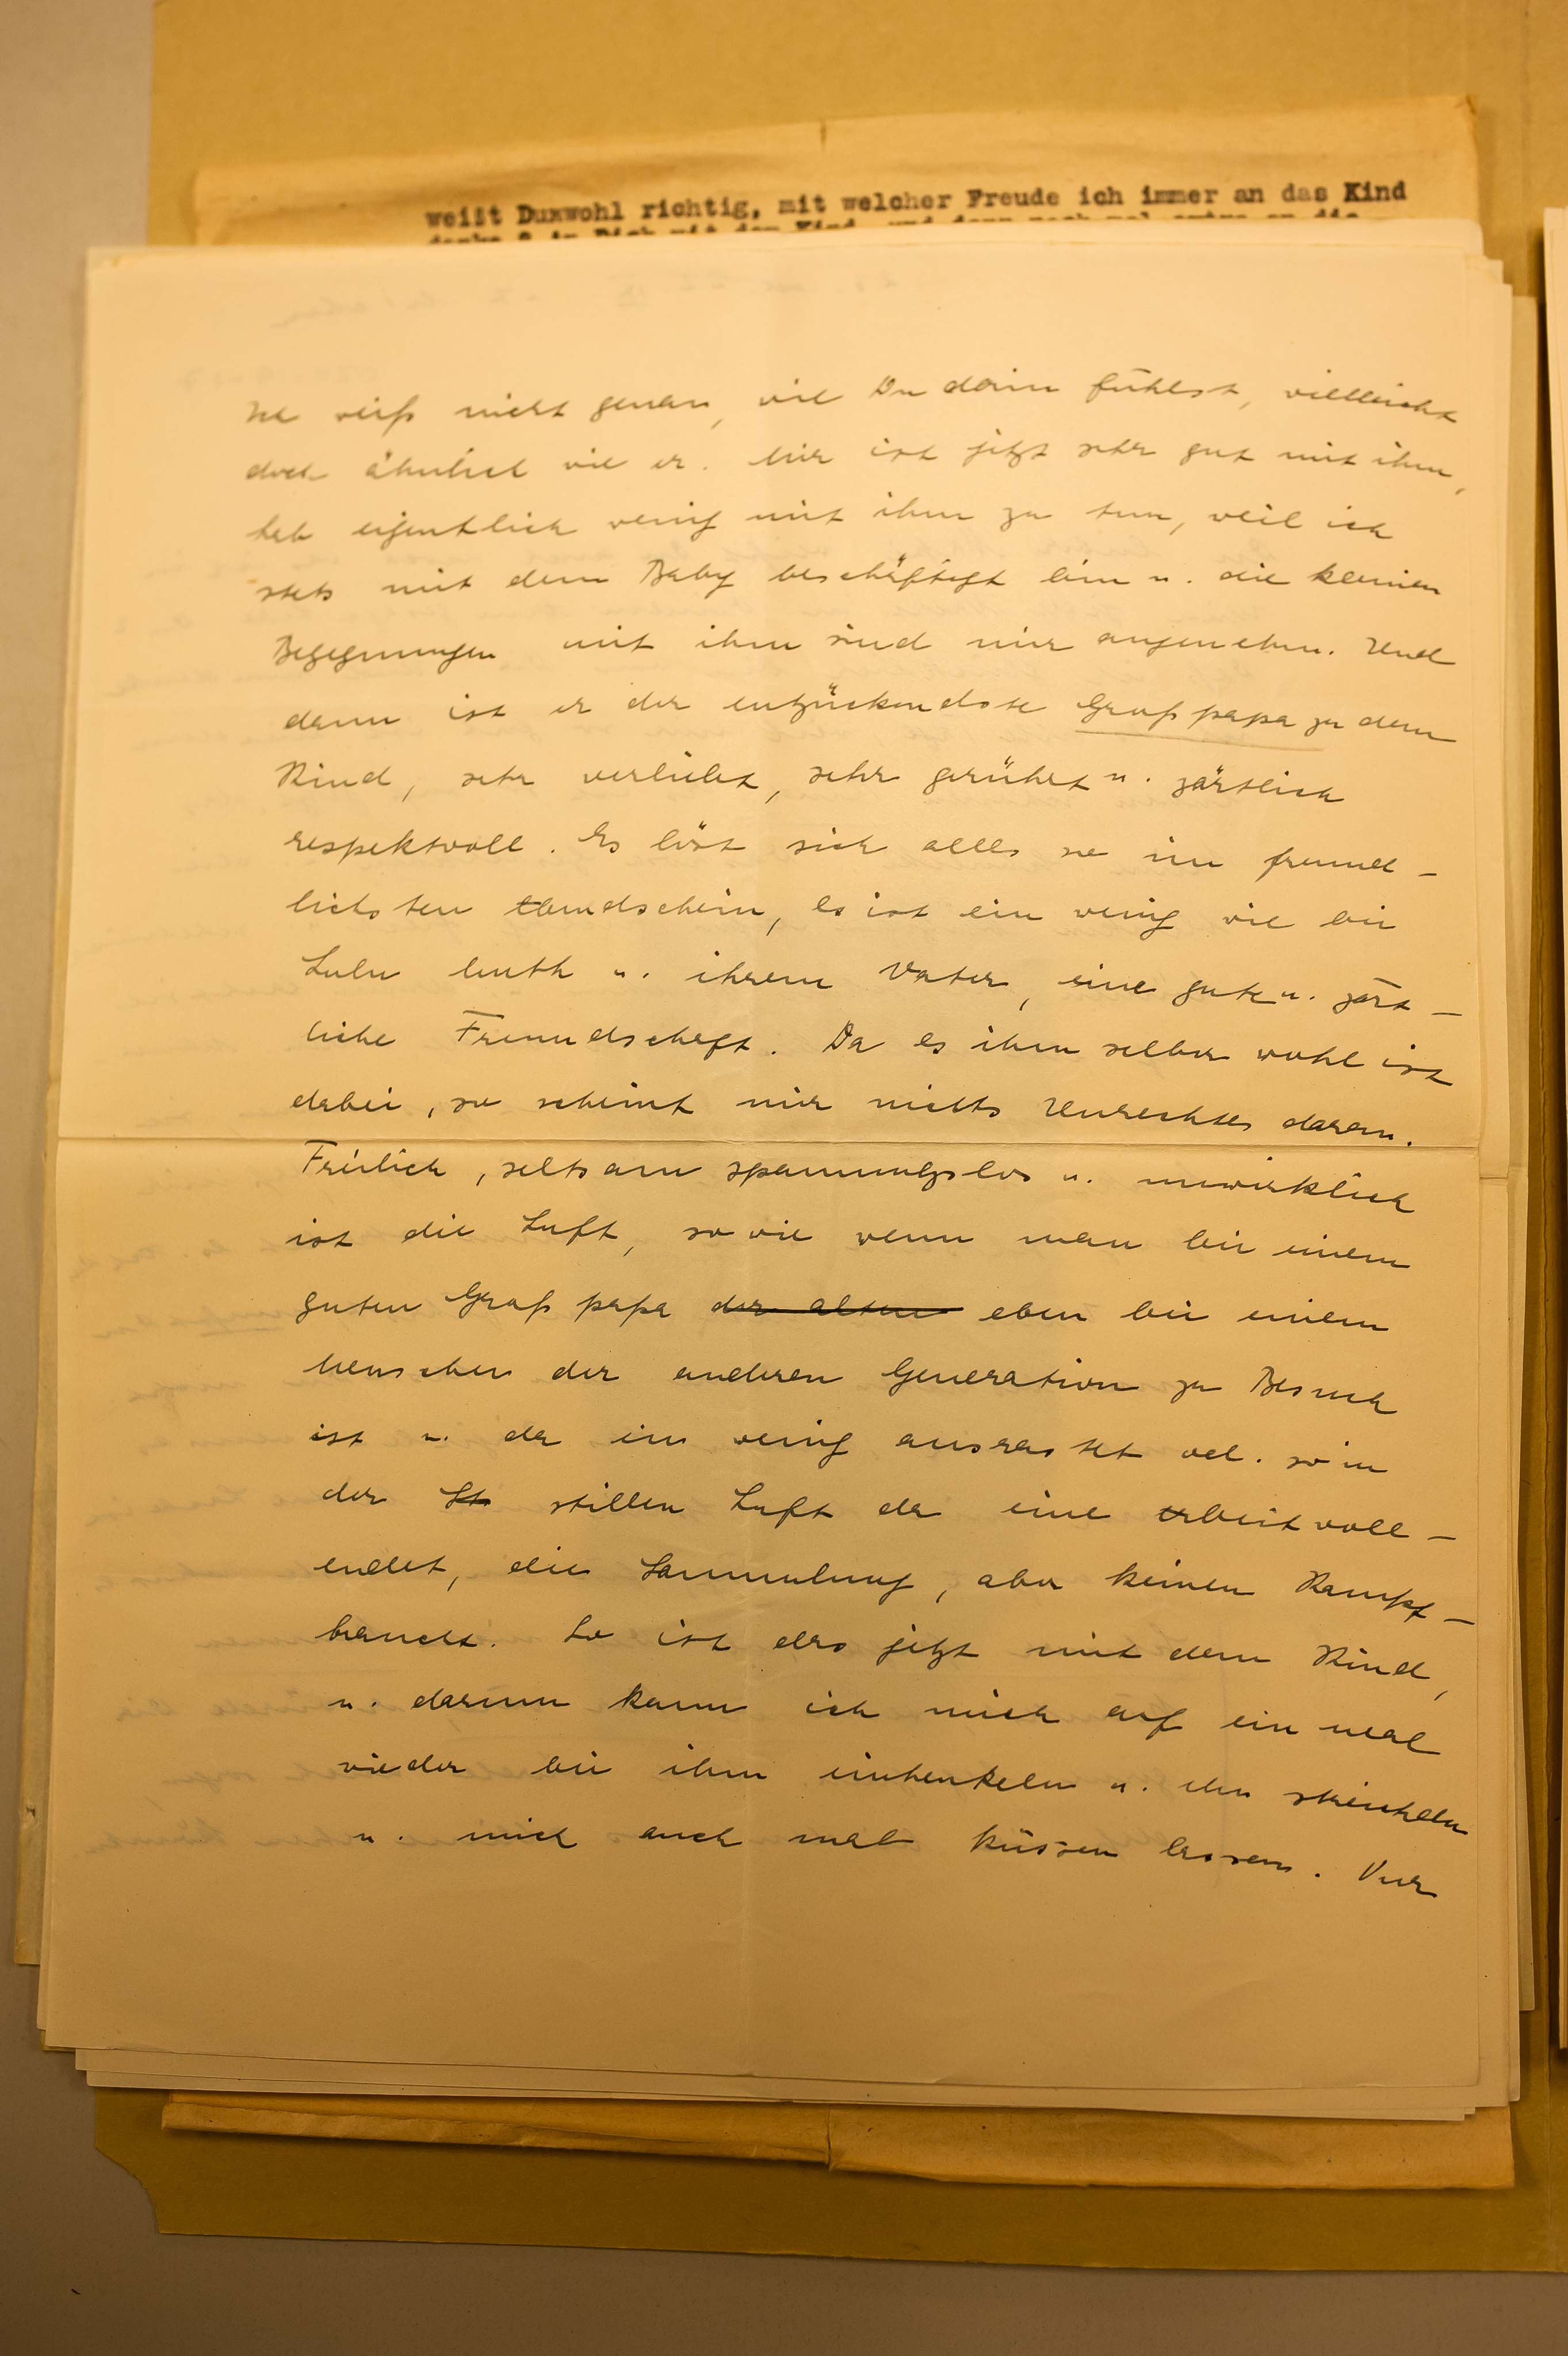 weißt Duxwohl richtig, mit welcher Freude ich immer an das Kind
Ich weiß nicht genau, wie Du darin fühlst, vielleicht
doch ähnlich wie er. Mir ist jetzt sehr gut mit ihm,
hab eigentlich wenig mit ihm zu tun, weil ich
stets mit dem Baby beschäftigt bin u. die kleinen
Begegnungen mit ihm sind mir angenehm. Und
dann ist er der entzückendste Großpapa zu dem
Kind, sehr verliebt, sehr gerührt u. zärtlich
respektvoll. Es löst sich alles so im freund-
lichsten Abendschein, es ist ein wenig wie bei
Lulu u. ihrem Vater, eine gute u. zärt-
liche Freundschaft. Da es ihm selber wohl ist
dabei, so scheint mir nichts Unrechtes daran.
Freilich, seltsam spannungslos u. unwirklich
ist die Luft, so wie wenn man bei einem
guten Großpapa der alten eben bei einem
Menschen der anderen Generation zu Besuch
ist u. da ein wenig ausrastet od. so in
der St stillen Luft da eine Arbeit voll-
endet, die Sammlung, aber keinen Kampf-
braucht. So ist das jetzt mit dem Kind,
u. darum kann ich mich auf ein mal
wieder bei ihm einhenkeln u. ihn streicheln
u. mich auch mal küssen lassen. Nur